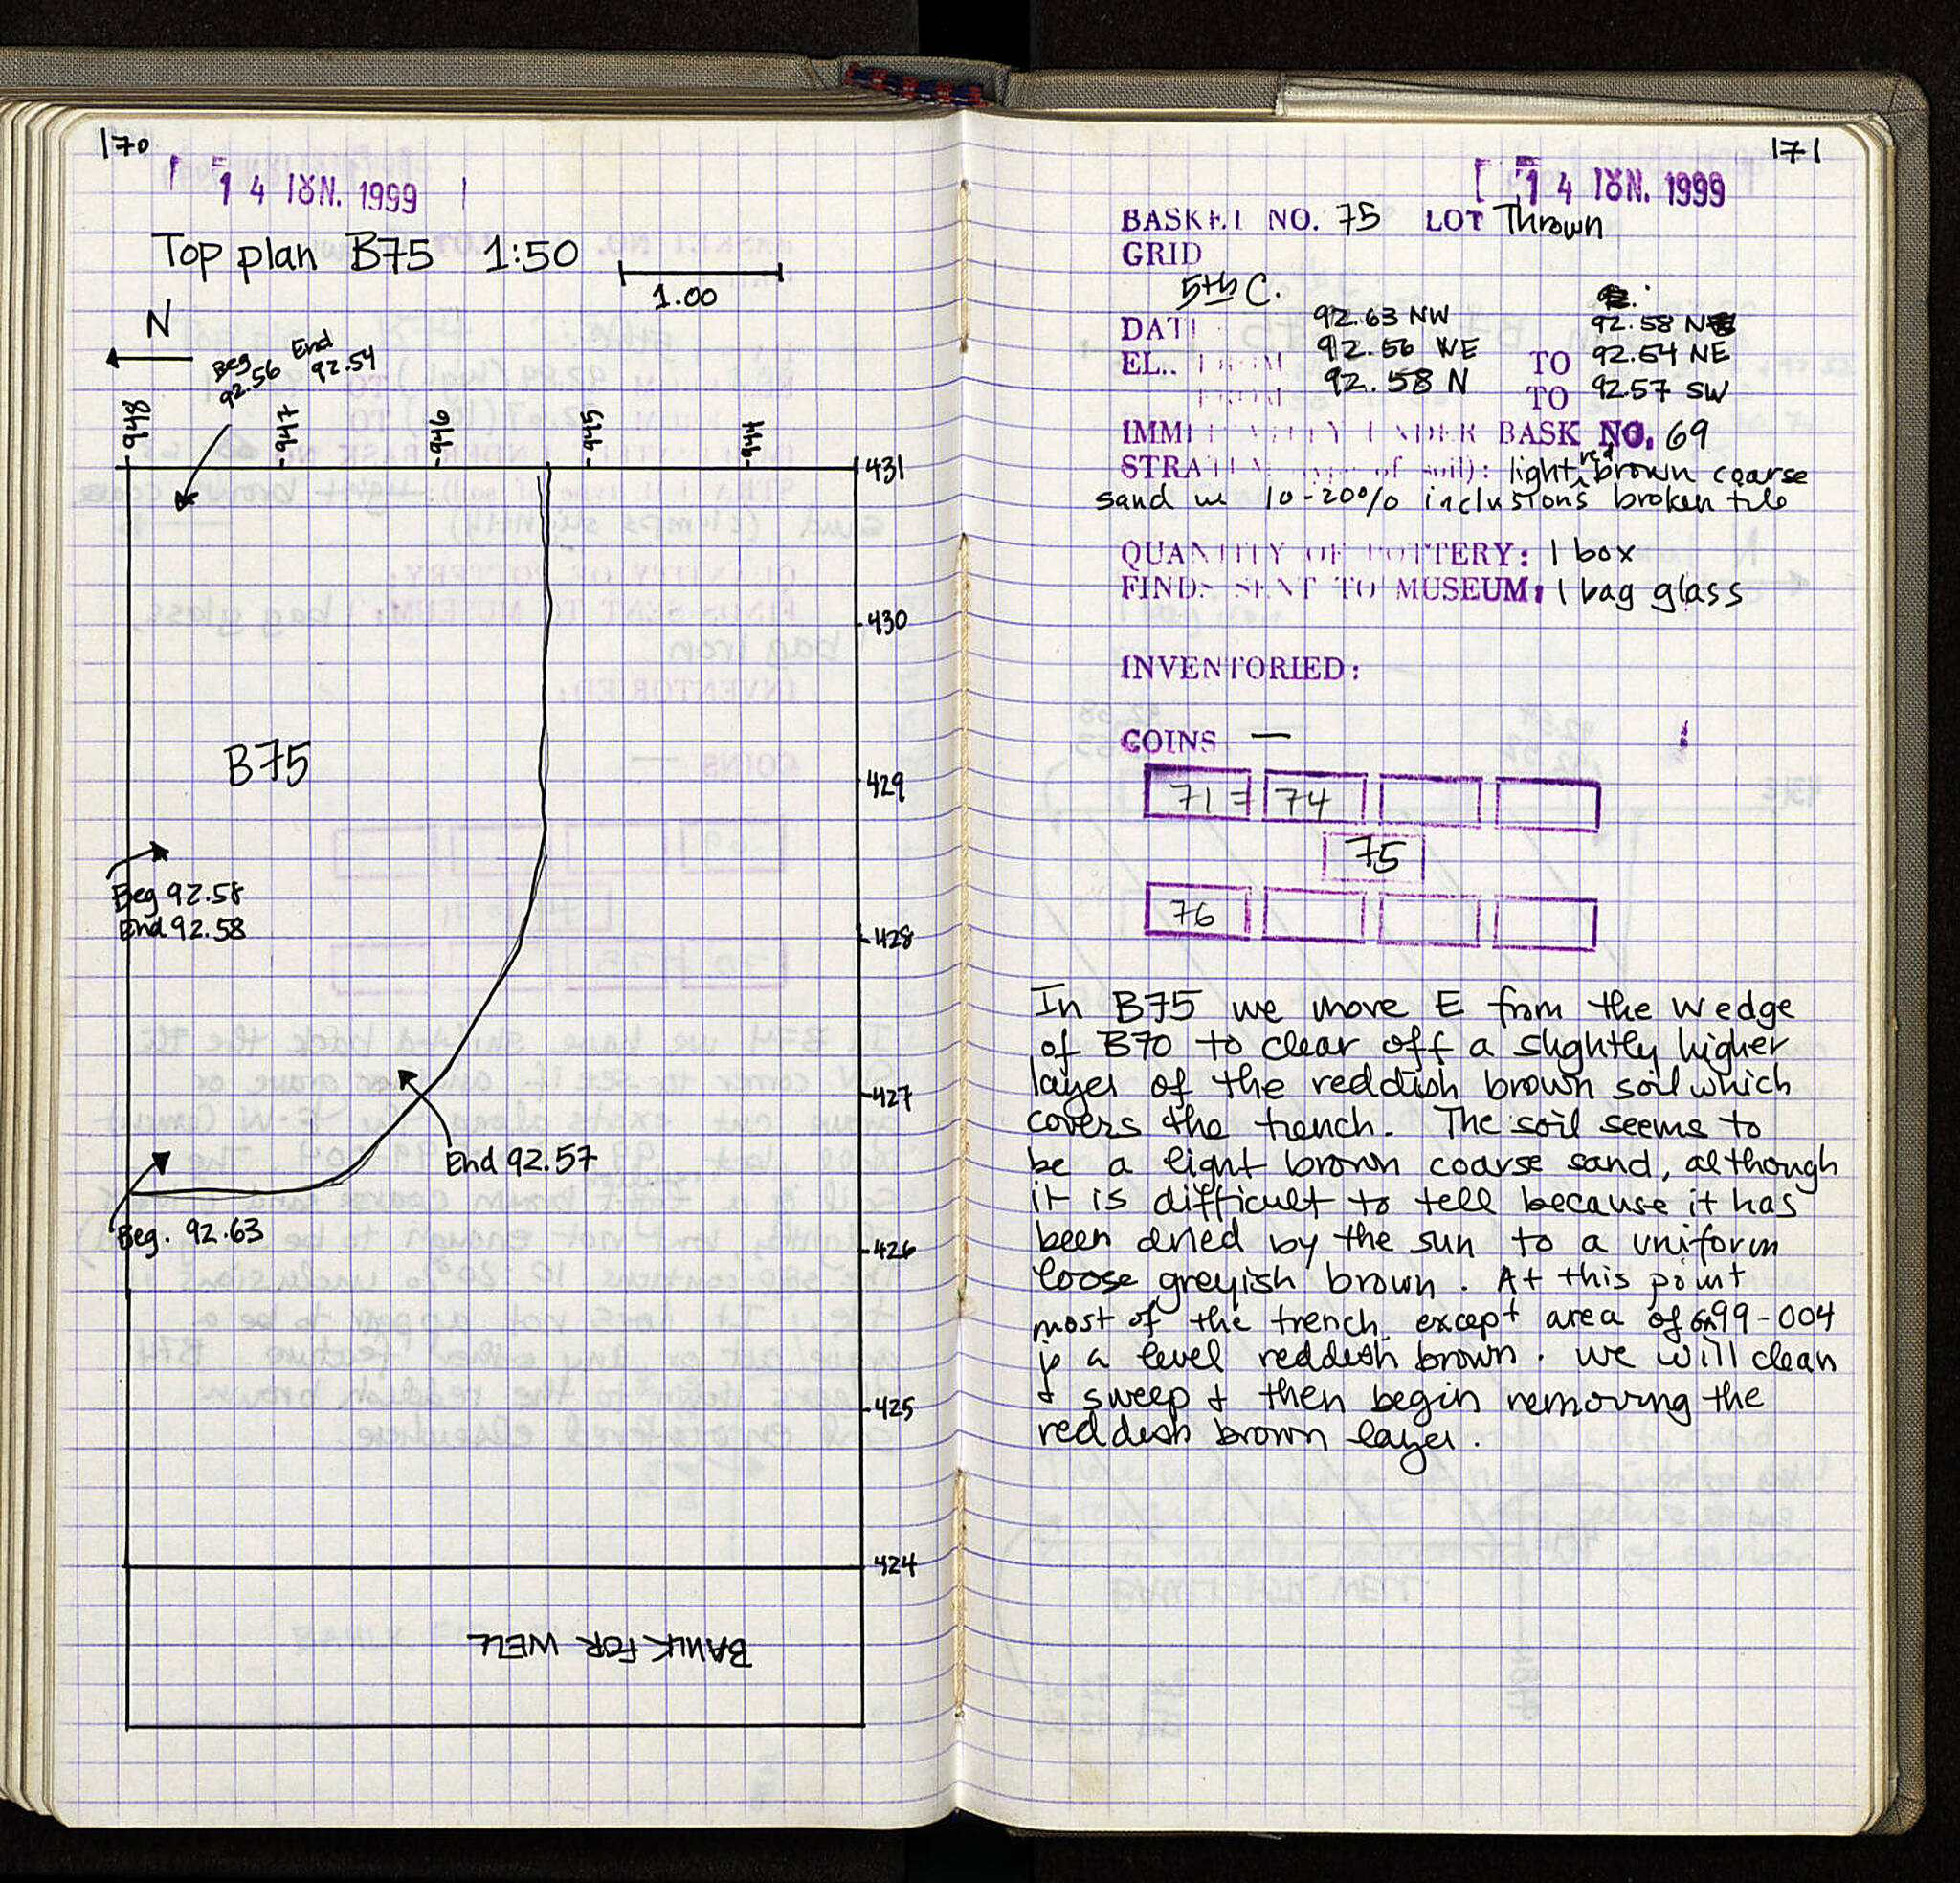 170
14 ΙΟΥΝ. 1999
Top plan B75 1:50
1.00
N
Beg 92.56 End 92.54
948 947 946 945 944
431
430
B75
429
Beg 92.58
End 92.58
428
427
End 92.57
Beg. 92.63
426
425
424
BAULK FOR WELL
171
14 ΙΟΥΝ. 1999
BASKET NO. 75 LOT Thrown
GRID
5th C.
DATE 92.63 NW 92.58 N
EL. FROM 92.56 NE TO 92.54 NE
FROM 92.58 N TO 92.57 SW
IMMEDIATELY UNDER BASK NO. 69
STRATUM (type of soil): light red brown coarse
sand w 10-20% inclusions broken tile
QUANTITY OF POTTERY: 1 box
FINDS SENT TO MUSEUM: 1 bag glass
INVENTORIED:
COINS —
71 = 74
75
76
In B75 we move E from the wedge
of B70 to clear off a slightly higher
layer of the reddish brown soil which
covers the trench. The soil seems to
be a light brown coarse sand, although
it is difficult to tell because it has
been dried by the sun to a uniform
loose greyish brown. At this point
most of the trench except area of 99-004
is a level reddish brown. We will clean
& sweep & then begin removing the
reddish brown layer.